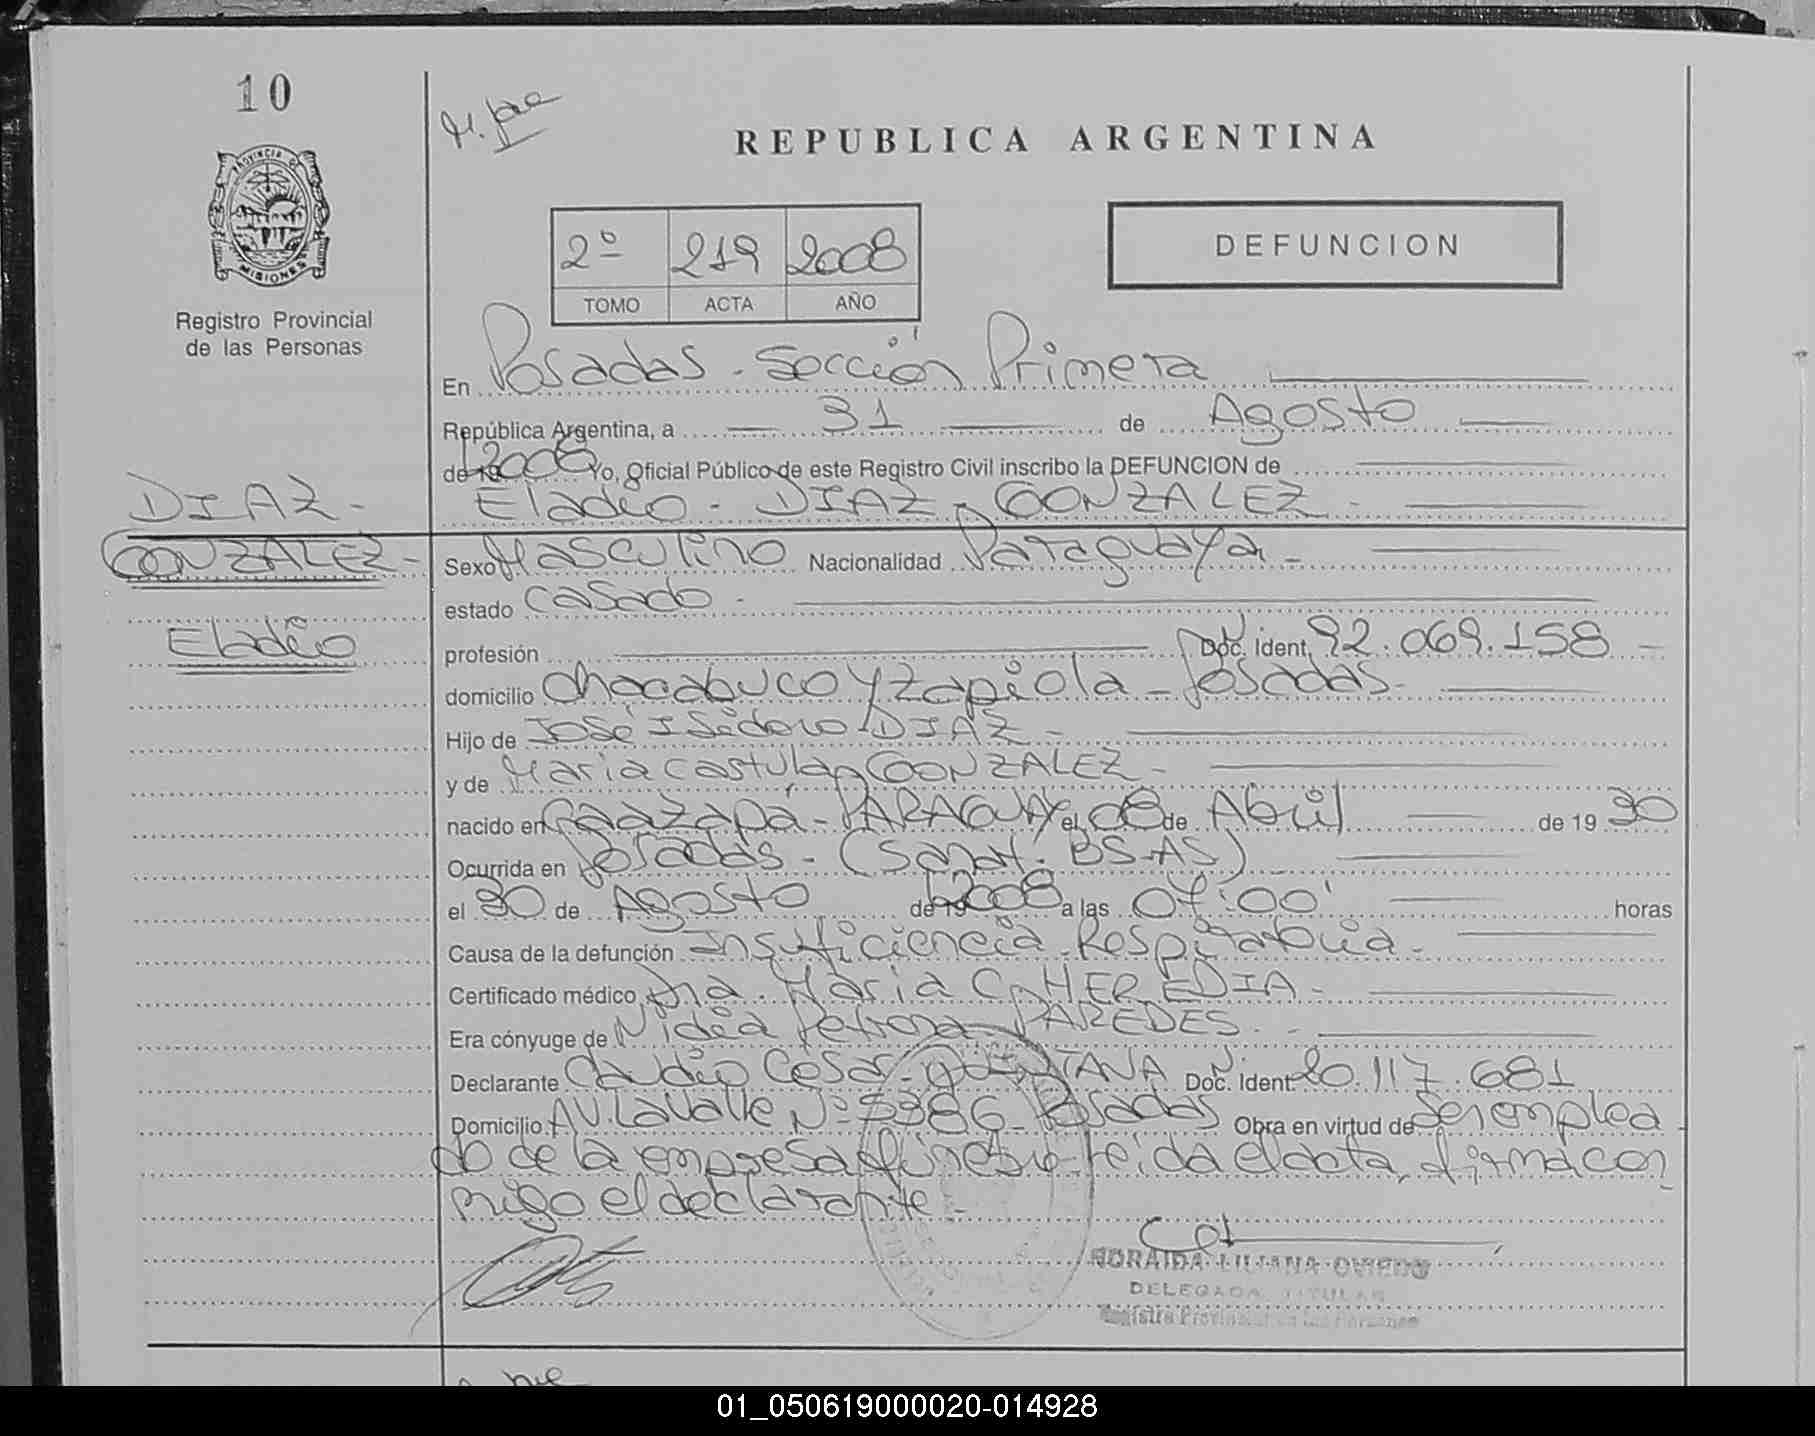 10
PROVINCIA DE
MISIONES
Registro Provincial
de las Personas
REPUBLICA ARGENTINA
2º 219 2008
TOMO ACTA AÑO
DEFUNCION
En Posadas - Sección Primera
República Argentina, a 31 de Agosto
de 19 2008 Yo, Oficial Público de este Registro Civil inscribo la DEFUNCION de
DIAZ - Eladio - DIAZ - GONZALEZ -
GONZALEZ - Sexo Masculino Nacionalidad Paraguaya -
estado Casado -
Eladio
profesión Doc. Ident. 92.069.158
domicilio Chacabuco y Zapiola - Posadas -
Hijo de José Isidoro DIAZ -
y de Maria Castula GONZALEZ -
nacido en Caazapá - PARAGUAY el 08 de Abril de 19 30
Ocurrida en Posadas - (Sanat. BS-AS)
el 30 de Agosto de 19 2008 a las 07:00' horas
Causa de la defunción Insuficiencia Respiratoria -
Certificado médico Dra. Maria C. HEREDIA -
Era cónyuge de Nidia Petrona PAREDES -
Declarante Claudio César - QUINTANA Doc. Ident. 20.117.681
Domicilio AV. Lavalle Nº 5386 - Posadas Obra en virtud de Ser emplea
do de la empresa fúnebre leida el acta, firma con
migo el declarante -
NORAIDA LILIANA OVIEDO
DELEGADA TITULAR
Registro Provincial de las Personas
01_050619000020-014928